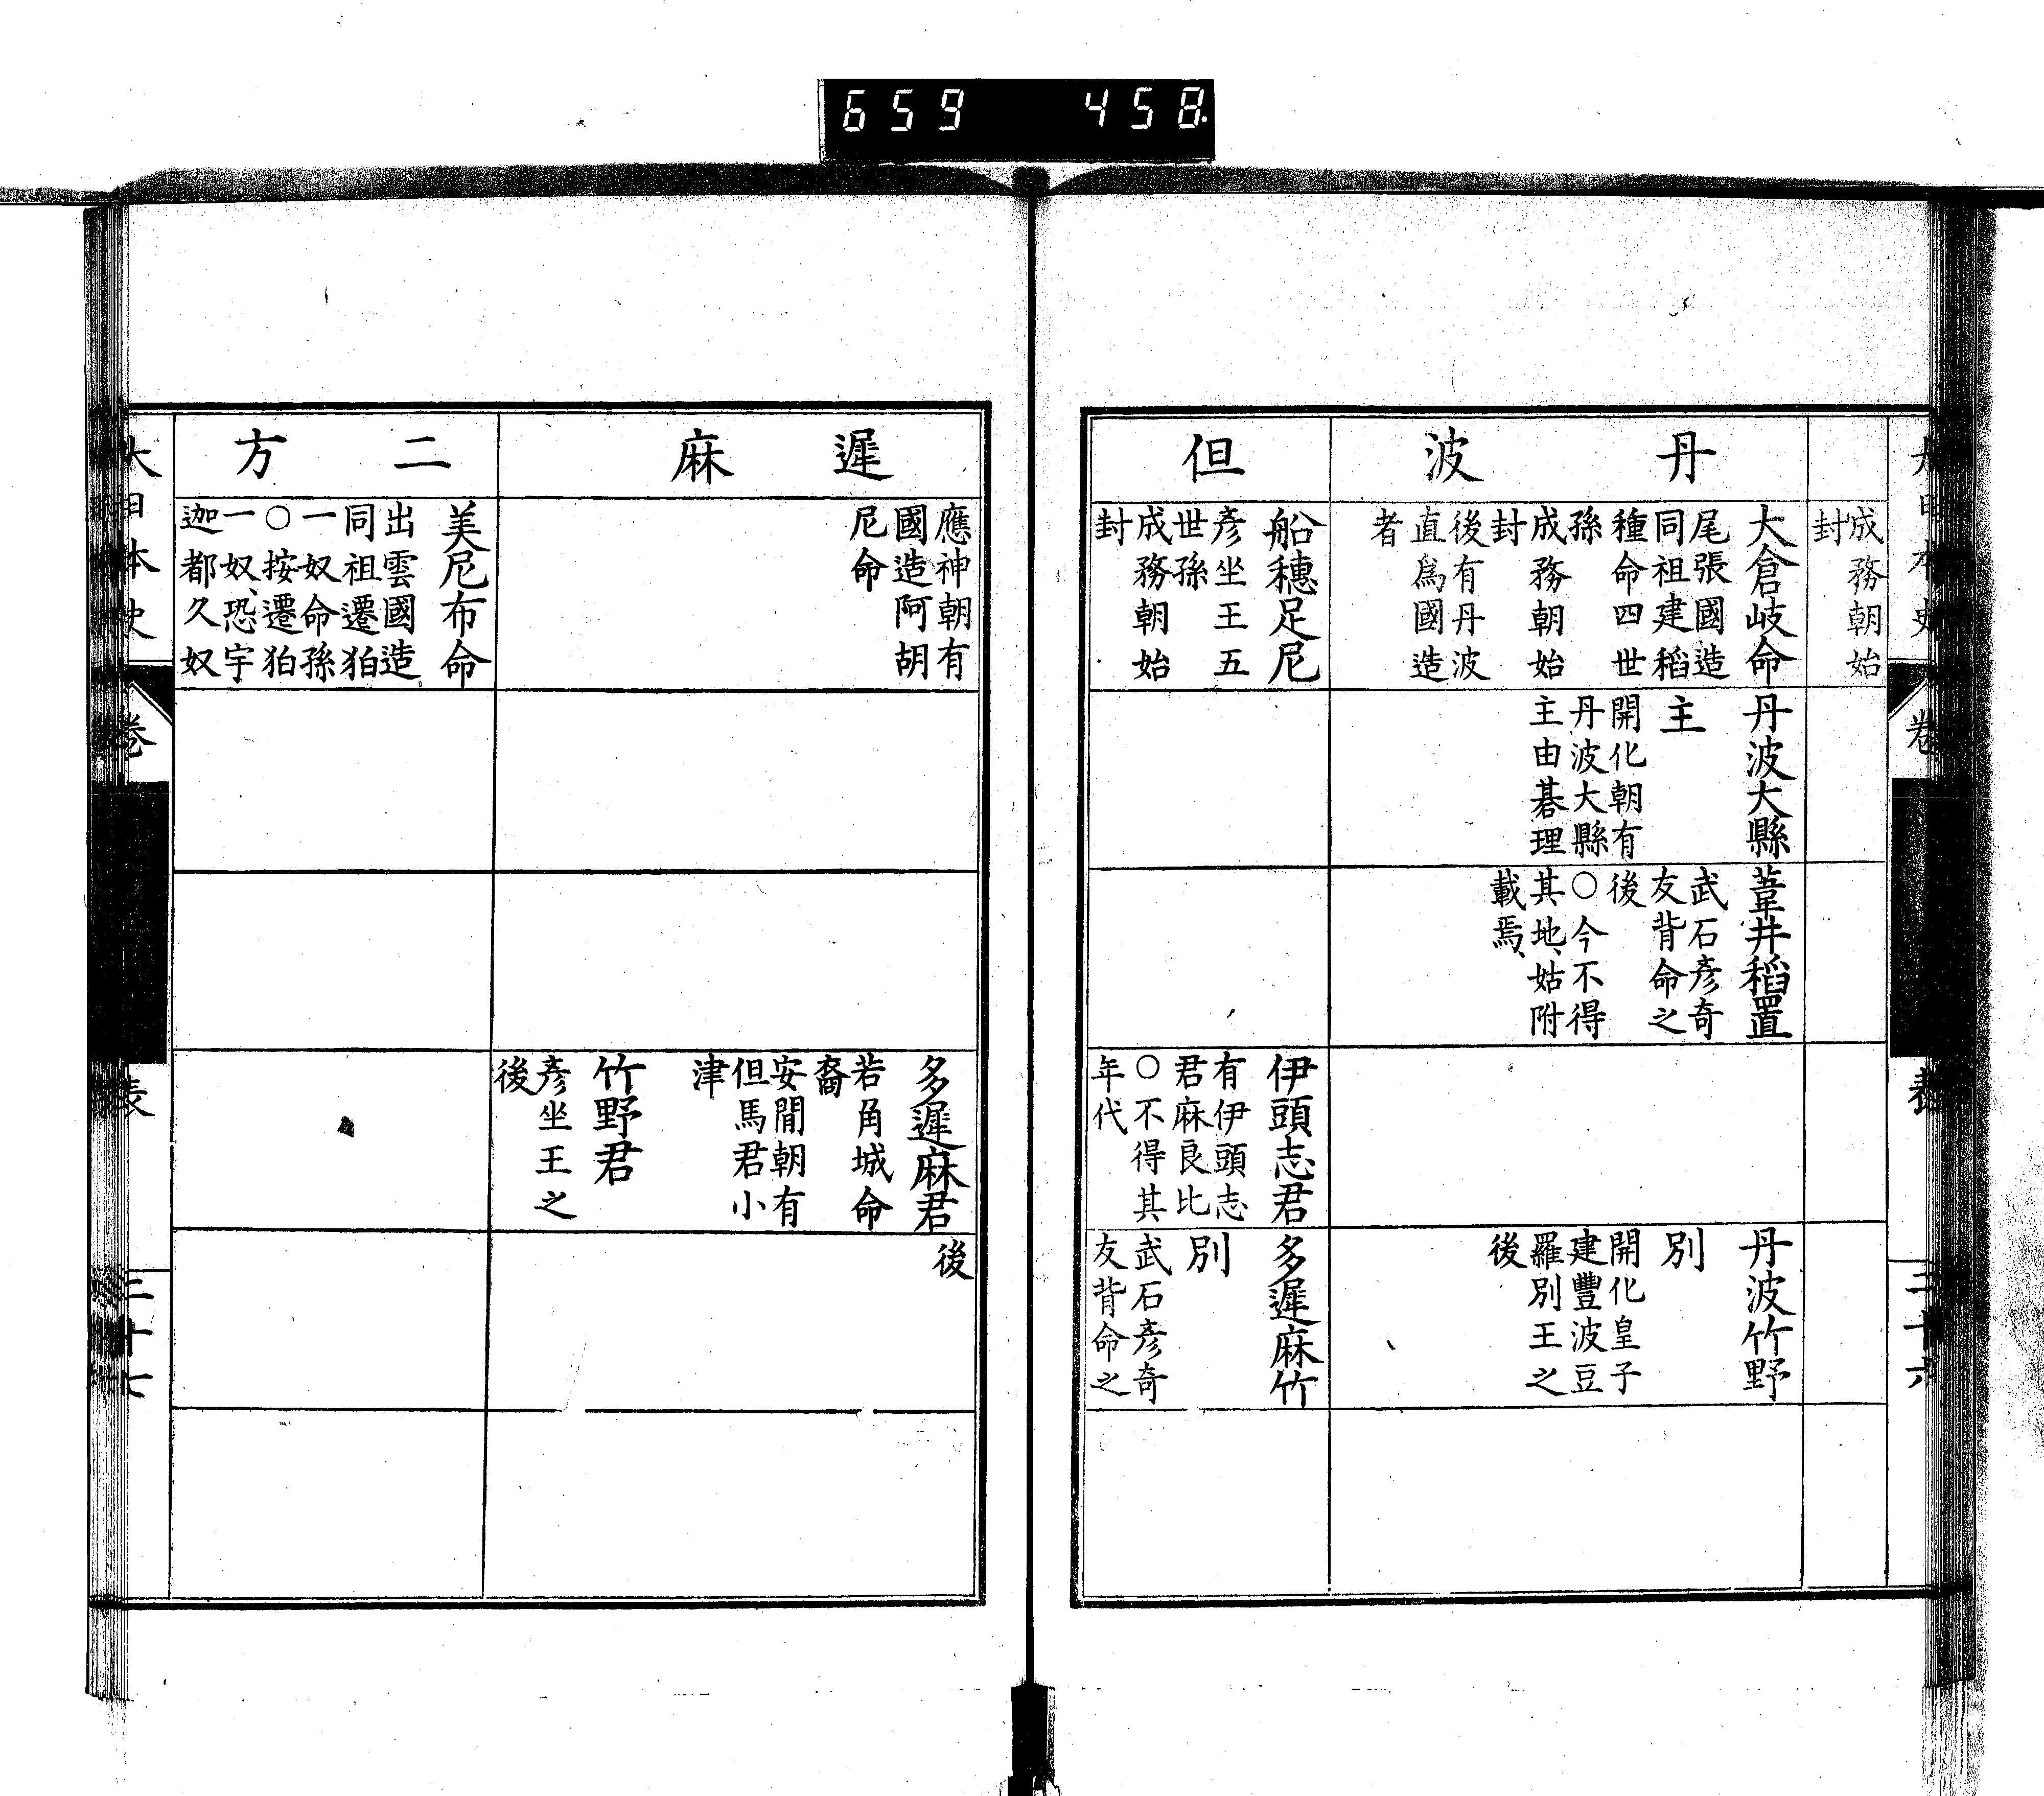 659 458
成務朝始
封
丹波
大倉岐命
尾張國造
同祖建稻
種命四世
孫
成務朝始
封
後有丹波
直爲國造
者
丹波大縣
主
開化朝有
丹波大縣
主由碁理
葦井稻置
武石彥奇
友背命之
後
○今不得
其地、姑附
載焉、
丹波竹野
別
開化皇子
建豐波豆
羅別王之
後
但
船穗足尼
彥坐王五
世孫
成務朝始
封
伊頭志君
有伊頭志
君麻良比
○不得其
年代
多遲麻竹
別
武石彥奇
友背命之
遲麻
應神朝有
國造阿胡
尼命
多遲麻君
若角城命
裔
安閒朝有
但馬君小
津
竹野君
彥坐王之
後
後
二方
美尼布命
出雲國造
同祖遷狛
一奴命孫
○按遷狛
一奴、恐宇
迦都久奴
大日本史
卷
表
三十七